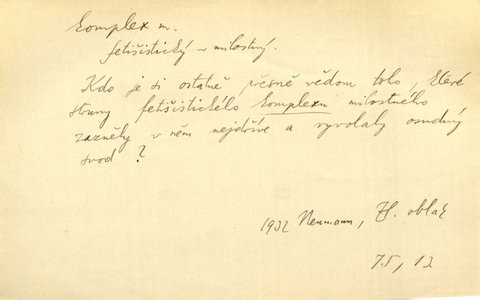 Komplex m.
fetišistický – milostný.
Kdo je si ostatně přesně vědom toho, které
struny fetišistického komplexu milostného
zazněly v něm nejdříve a vyvolaly osudný
svod?
1932 Neumann, Zl. oblak
75, 13.